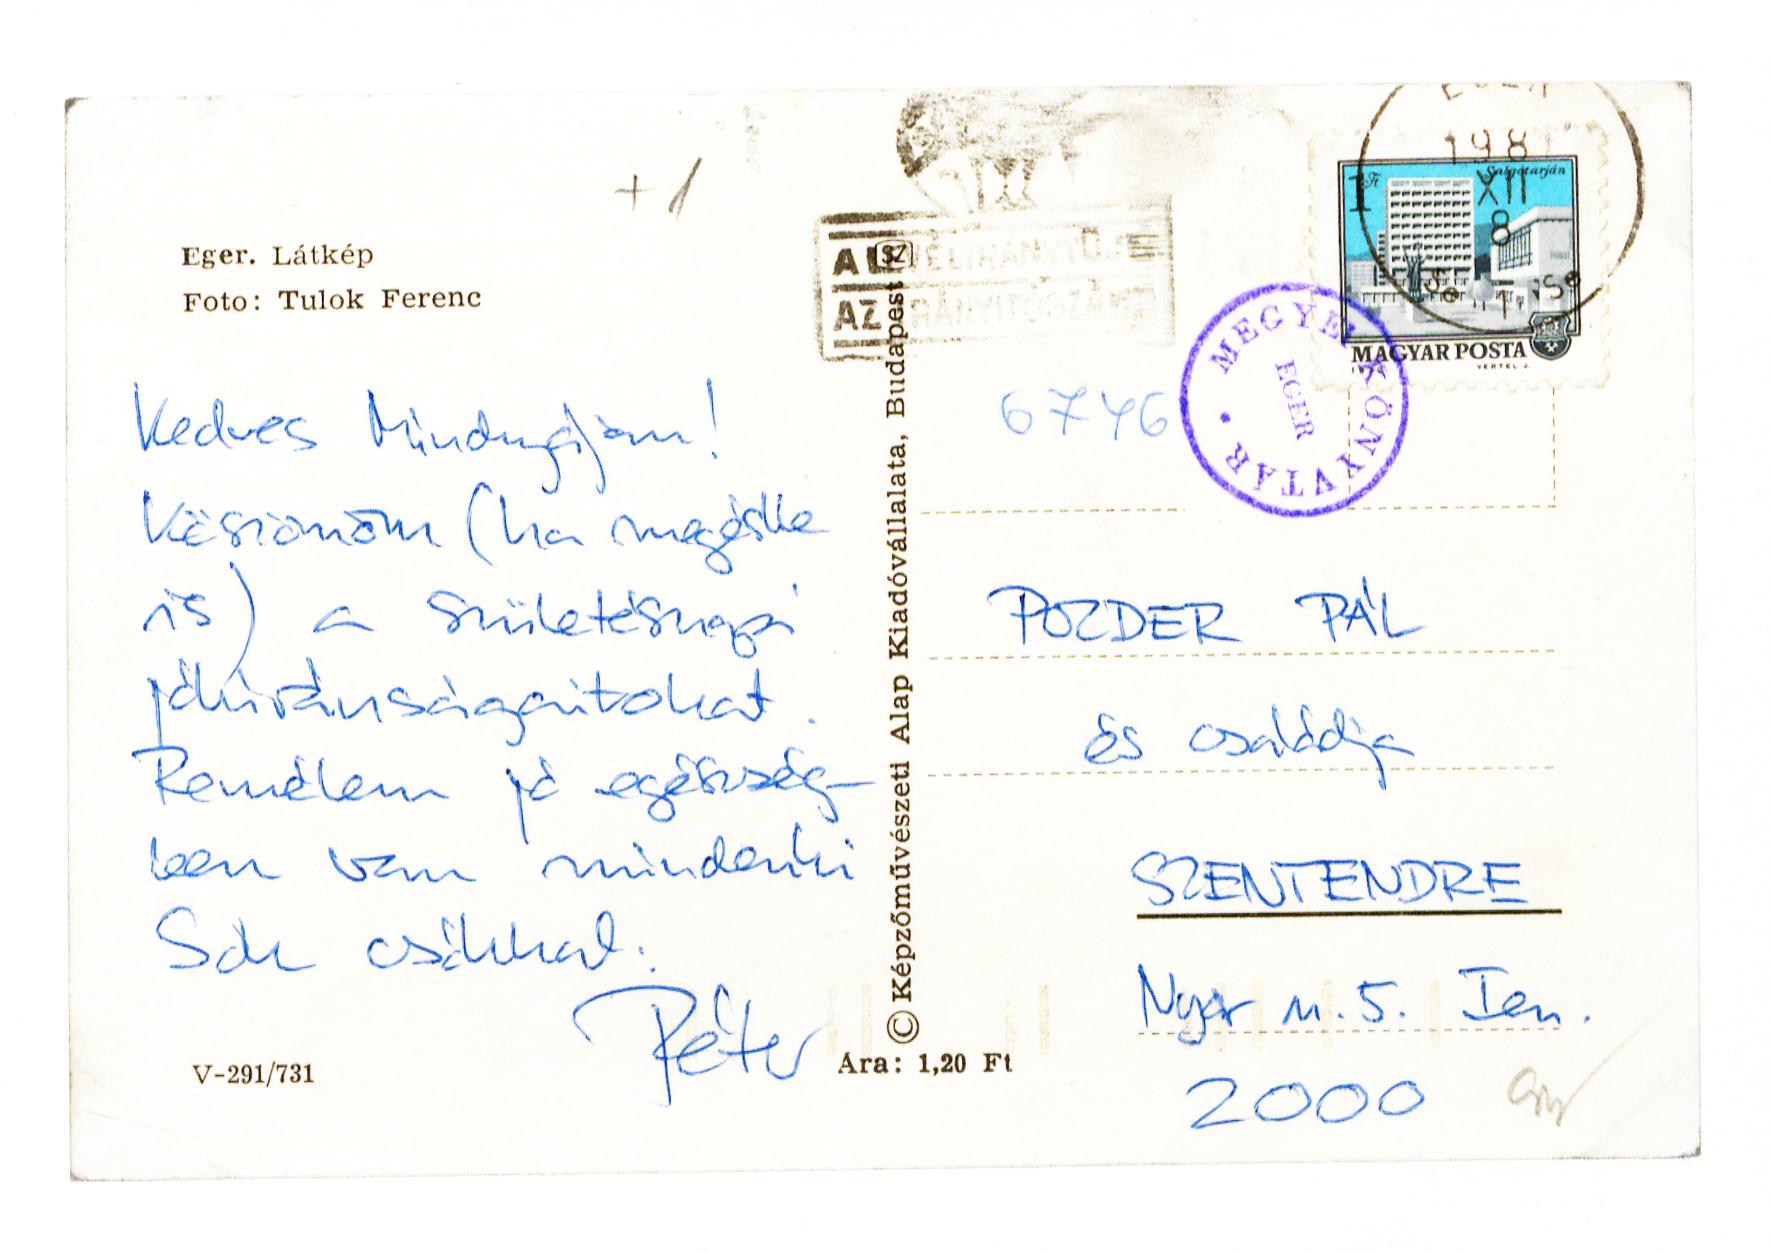 +1
Eger. Látkép
Foto: Tulok Ferenc
Kedves Mindnyájan!
Köszönöm (ha megkésve
is) a születésnapi
jókívánságaitokat.
Remélem jó egészség-
ben van mindenki
Sok csókkal:
Péter
V-291/731
© Képzőművészeti Alap Kiadóvállalata, Budapest
SZ
Ára: 1,20 Ft
AZ IRÁNYÍTÓSZÁM
EGER
198
XII
8
1 Ft
Salgótarján
MAGYAR POSTA
VERTEL J.
MEGYEI KÖNYVTÁR
EGER
6746
POZDER PÁL
és családja
SZENTENDRE
Nyár u. 5. Ien.
2000